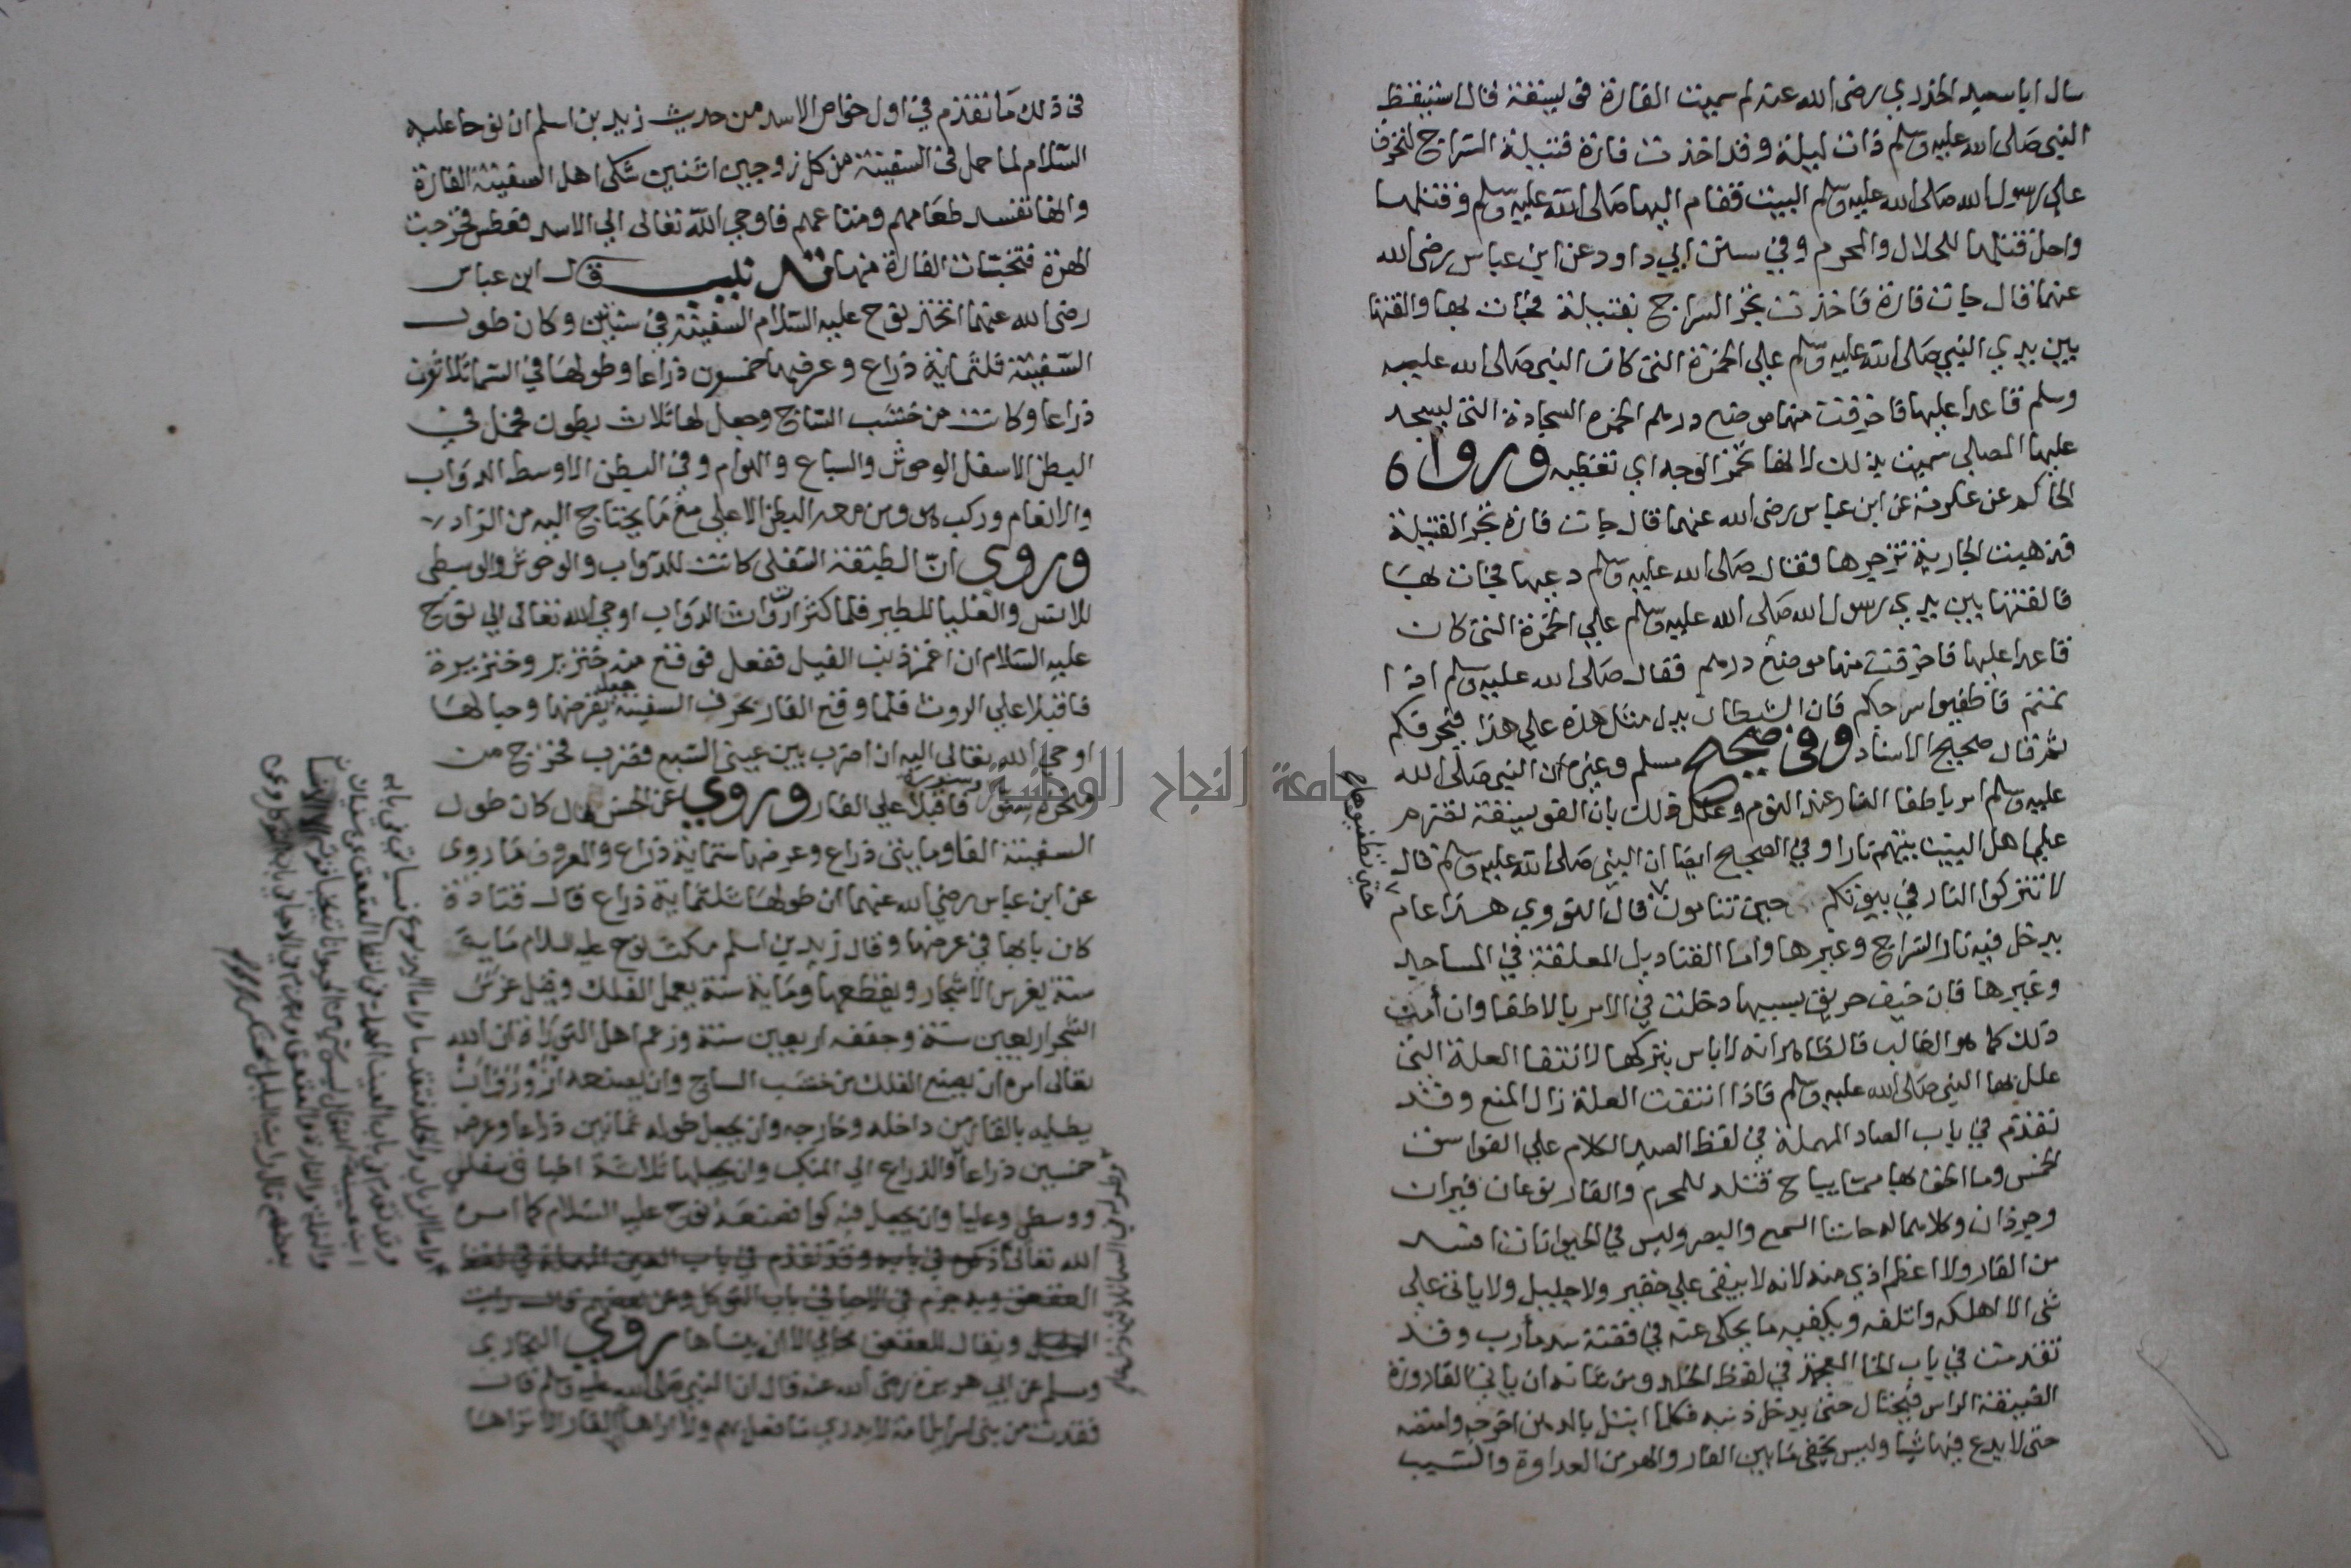 سال ابا سعيد الخدري رضي الله عنه لم سميت الفارة فويسقة فقال استيقظ
النبي صلى الله عليه وسلم ذات ليلة وقد اخذت فارة فتيلة السراج لتحرق
على رسول الله صلى الله عليه وسلم البيت فقام اليها صلى الله عليه وسلم وقتلها
واحل قتلها للحلال والمحرم وفي سنن ابي داود عن ابن عباس رضي الله
عنهما قال جات فارة فاخذت تجر السراج بفتيلة فجات بها والقتها
بين يدي النبي صلى الله عليه وسلم على الخمرة التي كان النبي صلى الله عليه
وسلم قاعدا عليها فاحرقت منها موضع درهم الخمره السجادة التي يسجد
عليها المصلي سميت بذلك لانها تخمر الوجه اي تغطيه ورواه
الحاكم عن عكرمة عن ابن عباس رضي الله عنهما قال جات فارة تجر الفتيلة
فذهبت الجارية تزجرها فقال صلى الله عليه وسلم دعيها فجات بها
فالقتها بين يدي رسول الله صلى الله عليه وسلم على الخمرة التي كان
قاعدا عليها فاحرقت منها موضع درهم فقال صلى الله عليه وسلم اذا
نمتم فاطفيوا سرجكم فان الشيطان يدل مثل هذه على هذا فيحرقكم
ثم قال صحيح الاسناد وفي صحيح مسلم وغيره ان النبي صلى الله
عليه وسلم امر باطفا النار عند النوم وعلل ذلك بان الفويسقة تضرم
على اهل البيت بيتهم نارا وفي الصحيح ايضا ان النبي صلى الله عليه وسلم قال
لا تتركوا النار في بيوتكم حين تنامون قال النووي هذا عام
يدخل فيه نار السراج وغيرها واما القناديل المعلقة في المساجد
وغيرها فان خيف حريق بسببها دخلت في الامر بالاطفا وان أمن
ذلك كما هو الغالب فالظاهر انه لا باس بتركها لانتفا العلة التي
علل بها النبي صلى الله عليه وسلم فاذا انتفت العلة زال المنع وقد
تقدم في باب الصاد المهملة في لفظ الصيد الكلام على الفواسق
الخمس وما الحق بها مما يباح قتله للمحرم والفار نوعان فيران
وجرذان وكلاهما له حاستا السمع والبصر وليس في الحيوانات افسد
من الفار ولا اعظم اذي منه لانه لا يبقي على حقير ولا جليل ولا ياتي على
شي الا اهلكه واتلفه ويكفيه ما يحكى عنه في قصة سد مأرب وقد
تقدمت في باب الخا المعجمة في لفظ الخلد ومن شانه ان ياتي القارورة
الضيقة الراس فيحتال حتى يدخل ذنبه فكلما ابتل بالدهن اخرجه وامتصه
حتى لا يدع فيها شيا وليس يخفى ما بين الفار والهر من العداوة والسبب
في ذلك ما تقدم في اول خواص الاسد من حديث زيد بن اسلم ان نوحا عليه
السلام لما حمل في السفينة من كل زوجين اثنين شكى اهل السفينة الفارة
وانها تفسد طعامهم ومتاعهم فاوحي الله تعالى الى الاسد فعطس فخرجت
الهرة فتخبات الفارة منها تذنيب قال ابن عباس
رضي الله عنهما اتخذ نوح عليه السلام السفينة في سنتين وكان طول
السفينة ثلثماية ذراع وعرضها خمسون ذراعا وطولها في السما ثلاثون
ذراعا وكانت من خشب الساج وجعل لها ثلاث بطون فحمل في
البطن الاسفل الوحوش والسباع والهوام وفي البطن الاوسط الدواب
والانعام وركب هو ومن معه البطن الاعلى مع ما يحتاج اليه من الزاد
وروي ان الطبقة السفلى كانت للدواب والوحوش والوسطى
للانس والعليا للطير فلما كثر اروات الدواب اوحي الله تعالى الى نوح
عليه السلام ان اغمز ذنب الفيل ففعل فوقع منه خنزير وخنزيرة
فاقبلا على الروث فلما وقع الفار بحرف السفينة جعل يقرضها وحبالها
اوحي الله تعالى اليه ان اضرب بين عيني السبع فضرب فخرج من
منخره سنور وسنورة فاقبلا على الفار وروي عن الحسن قال كان طول
السفينة الفا ومايتي ذراع وعرضها ستماية ذراع والمعروف ما روي
عن ابن عباس رضي الله عنهما ان طولها ثلثماية ذراع قال قتادة
كان بابها في عرضها وقال زيد بن اسلم مكث نوح عليه السلام ماية
سنة يغرس الاشجار ويقطعها وماية سنة يعمل الفلك وقيل غرس
الشجر اربعين سنة وجففه اربعين سنة وزعم اهل التوراة ان الله
تعالى امره ان يصنع الفلك من خشب الساج وان يصنعه ازور وان
يطليه بالقار من داخله وخارجه وان يجعل طوله ثمانين ذراعا وعرضه
خمسين ذراعا والذراع الى المنكب وان يجعلها ثلاثة اطباق سفلى
ووسطى وعليا وان يجعل فيه كوا فصنعه نوح عليه السلام كما امره
الله تعالى
ويقال للعقعق روي البخاري
ومسلم عن ابي هريرة رضي الله عنه قال ان النبي صلى الله عليه وسلم قال
فقدت من بني اسرايل امة لا يدري ما فعل بهم ولا اراها الا الفار الا تراها
جامعة النجاح الوطنية